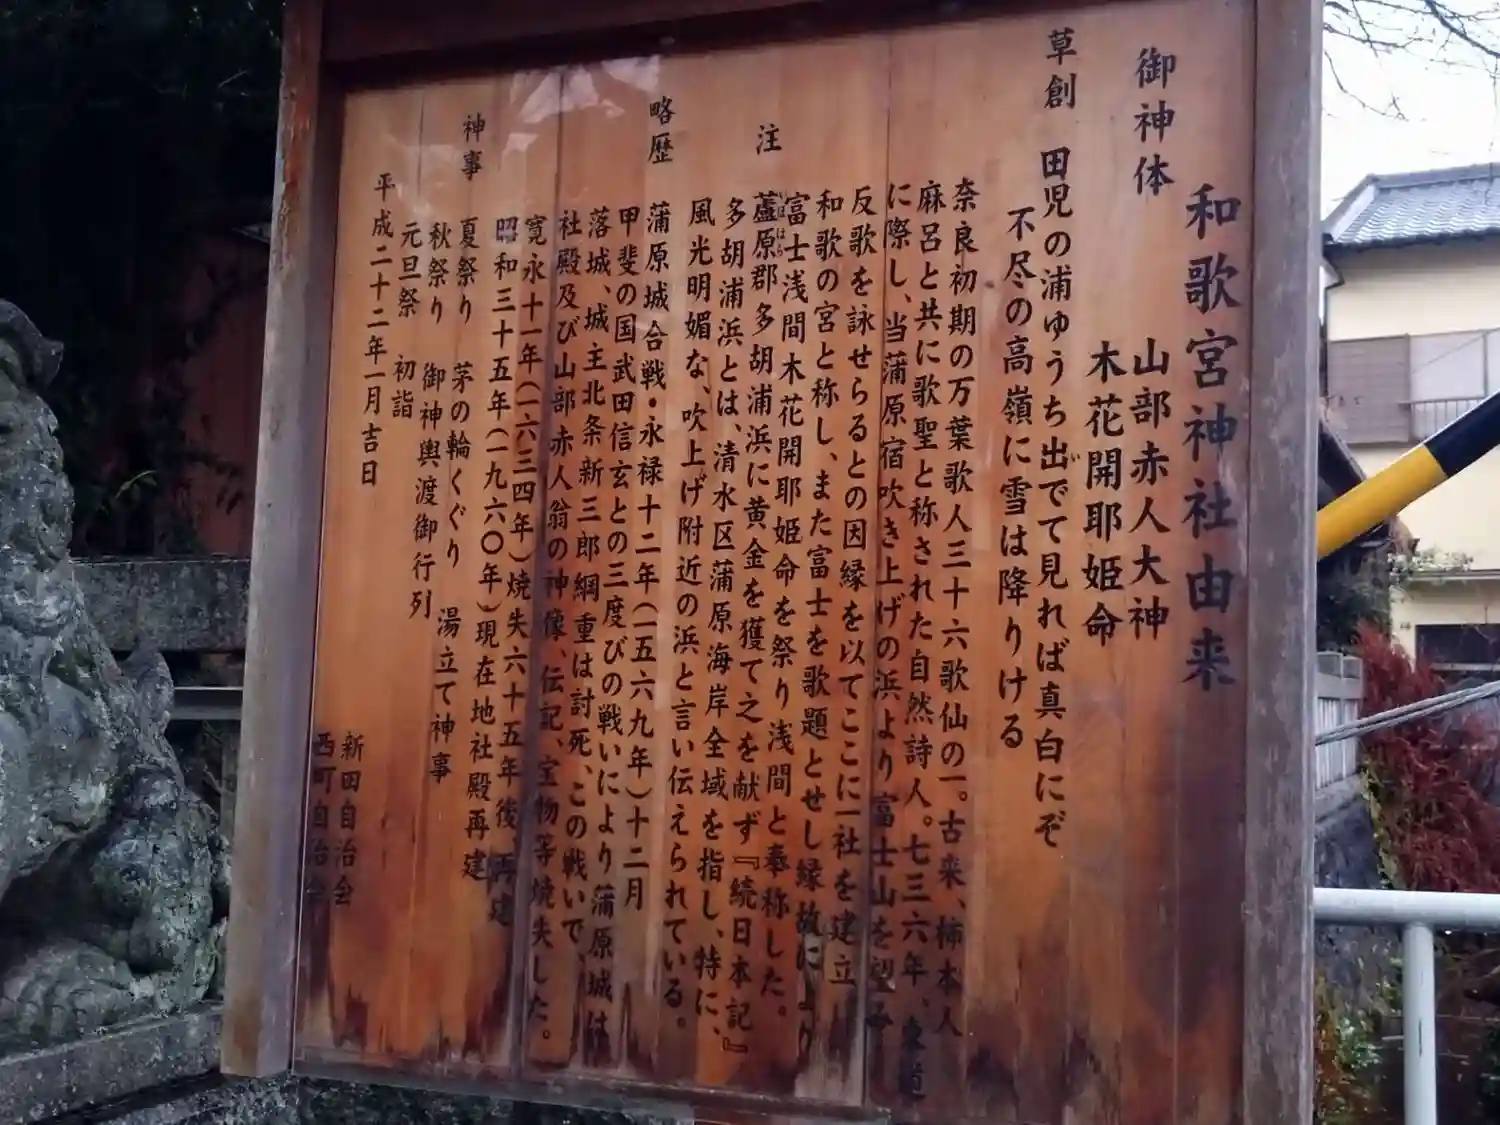 和歌宮神社由来
御神体　山部赤人大神
木花開耶姫命
草創　田児の浦ゆうち出でて見れば真白にぞ
不尽の高嶺に雪は降りける
奈良初期の万葉歌人三十六歌仙の一。古来、柿本人
麻呂と共に歌聖と称された自然詩人。七三六年、東道
に際し、当蒲原宿吹き上げの浜より富士山を望み
反歌を詠せらるとの因縁を以てここに一社を建立
和歌の宮と称し、また富士を歌題とせし縁故により
富士浅間木花開耶姫命を祭り浅間と奉称した。
注　蘆原郡多胡浦浜に黄金を獲て之を献ず『続日本記』
多胡浦浜とは、清水区蒲原海岸全域を指し、特に、
風光明媚な、吹上げ附近の浜と言い伝えられている。
略歴　蒲原城合戦・永禄十二年(一五六九年)十二月
甲斐の国武田信玄との三度びの戦いにより蒲原城は
落城、城主北条新三郎綱重は討死、この戦いで、
社殿及び山部赤人翁の神像、伝記、宝物等焼失した。
寛永十一年(一六三四年)焼失六十五年後、再建
昭和三十五年(一九六〇年)現在地社殿再建
神事　夏祭り　茅の輪くぐり　湯立て神事
秋祭り　御神輿渡御行列
元旦祭　初詣
平成二十二年一月吉日
新田自治会
西町自治会